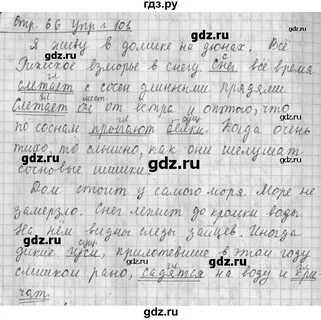 Стр. 66 Упр. 101
Я живу в домике на дюнах. Всё
Рижское взморье в снегу. Снег всё время
слетает с сосен длинными прядями.
Слетает он от ветра и оттого, что
по соснам прыгают белки. Когда очень
тихо, то слышно, как они шелушат
сосновые шишки.
Дом стоит у самого моря. Море не
замерзло. Снег лежит до кромки воды.
На нём видны следы зайцев. Иногда
дикие гуси, прилетевшие в этом году
слишком рано, садятся на воду и кри-
чат.
gdz.ru
gdz.ru
gdz.ru
gdz.ru
gdz.ru
gdz.ru
gdz.ru
gdz.ru